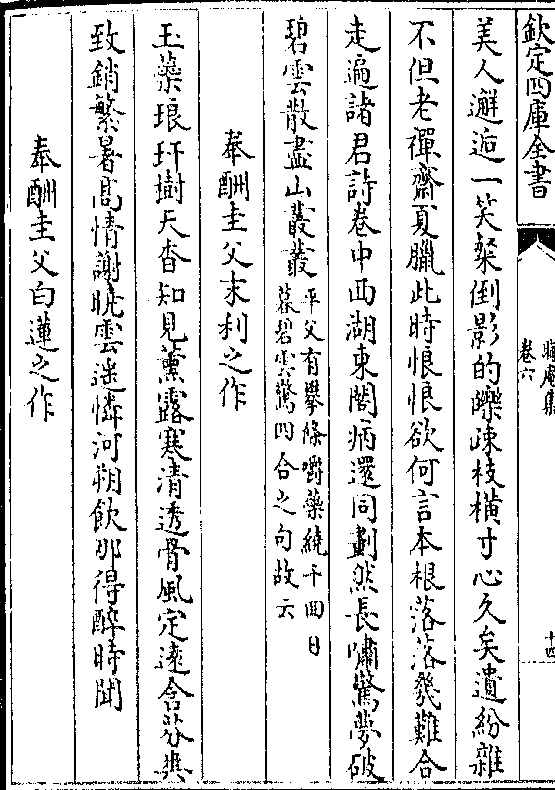 欽定四庫全書
晦庵集
卷六
十四
美人邂逅一笑粲倒影的皪疎枝橫寸心久矣遺紛雜
不但老禪齋夏臘此時悵悵欲何言本根落落幾難合
走遍諸君詩卷中西湖東閣病還同劃然長嘯驚夢破
碧雲散盡山叢叢平父有攀條嚼蘂繞千囬日
暮碧雲驚四合之句故云
奉酬圭父末利之作
玉蘂琅玕樹天香知見薰露寒清透骨風定遠含芬爽
致銷繁暑髙情謝曉雲遥憐河朔飲那得醉時聞
奉酬圭父白蓮之作